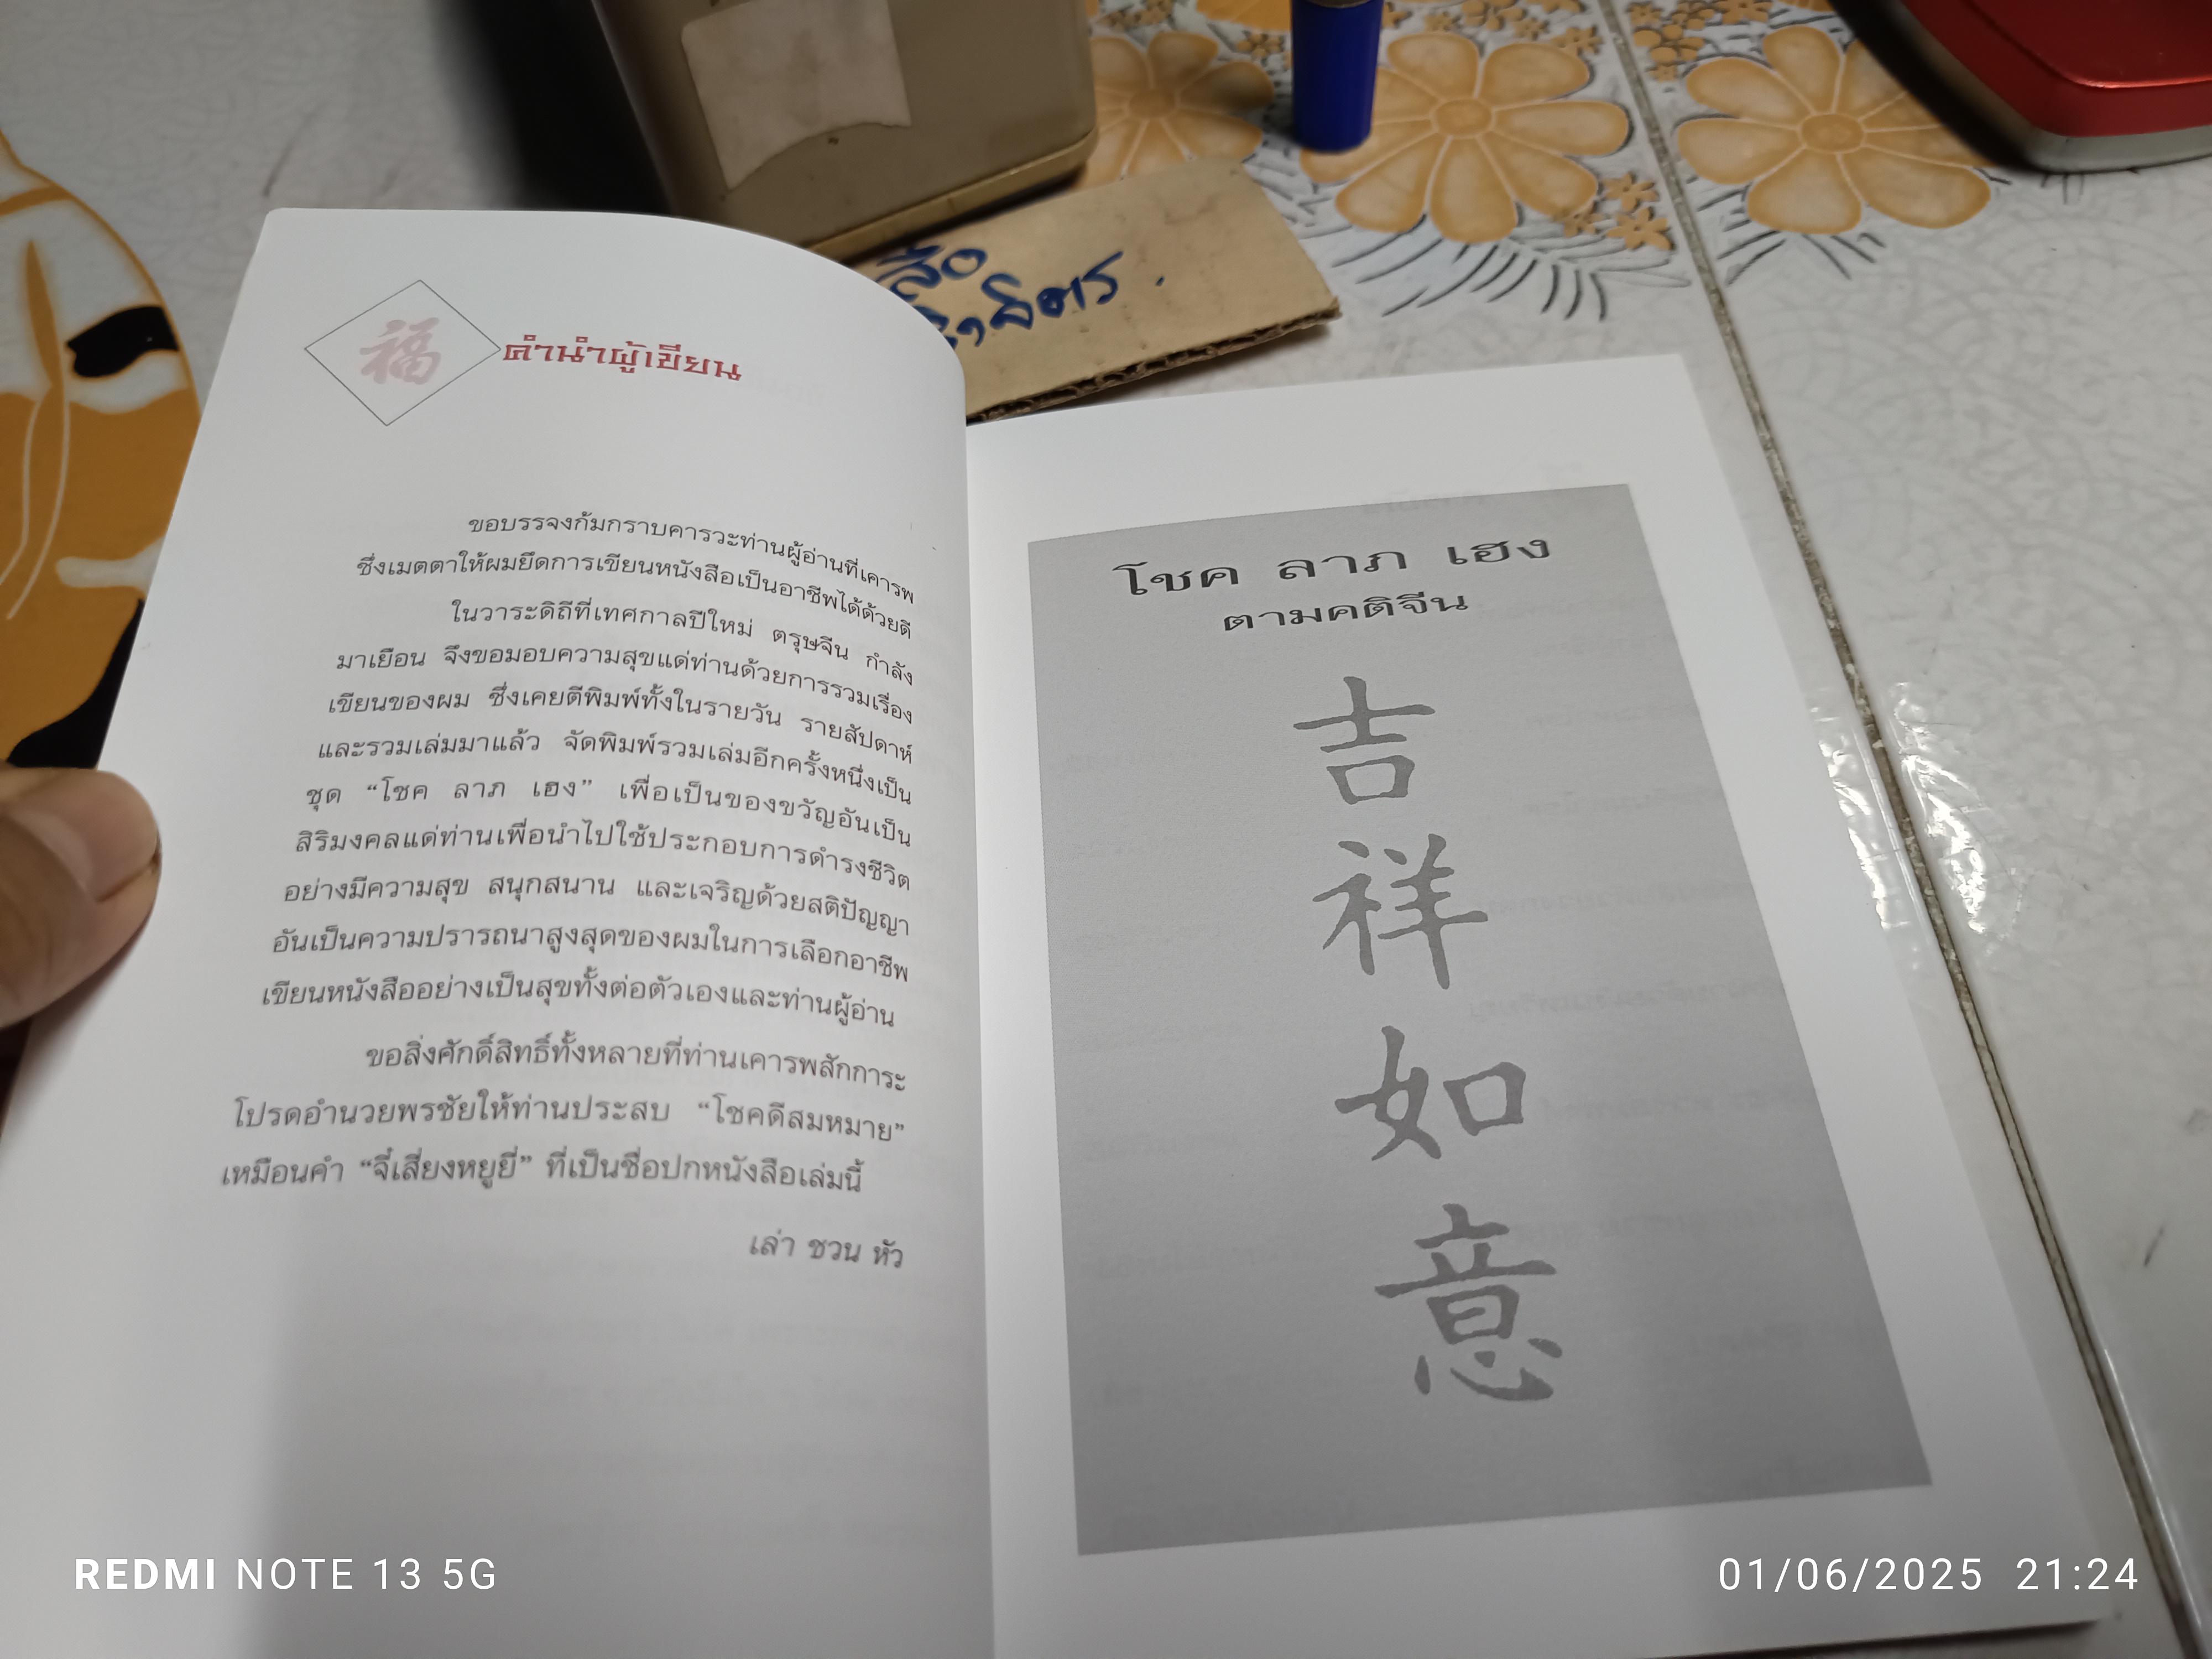 福
คำนำผู้เขียน
ขอบรรจงก้มกราบคารวะท่านผู้อ่านที่เคารพ
ซึ่งเมตตาให้ผมยึดการเขียนหนังสือเป็นอาชีพได้ด้วยดี
ในวาระดิถีที่เทศกาลปีใหม่ ตรุษจีน กำลัง
มาเยือน จึงขอมอบความสุขแด่ท่านด้วยการรวมเรื่อง
เขียนของผม ซึ่งเคยตีพิมพ์ทั้งในรายวัน รายสัปดาห์
และรวมเล่มมาแล้ว จัดพิมพ์รวมเล่มอีกครั้งหนึ่งเป็น
ชุด “โชค ลาภ เฮง” เพื่อเป็นของขวัญอันเป็น
สิริมงคลแด่ท่านเพื่อนำไปใช้ประกอบการดำรงชีวิต
อย่างมีความสุข สนุกสนาน และเจริญด้วยสติปัญญา
อันเป็นความปรารถนาสูงสุดของผมในการเลือกอาชีพ
เขียนหนังสืออย่างเป็นสุขทั้งต่อตัวเองและท่านผู้อ่าน
ขอสิ่งศักดิ์สิทธิ์ทั้งหลายที่ท่านเคารพสักการะ
โปรดอำนวยพรชัยให้ท่านประสบ “โชคดีสมหมาย”
เหมือนคำ “จี๋เสียงหยูยี่” ที่เป็นชื่อปกหนังสือเล่มนี้
เล่า ชวน หัว
โชค ลาภ เฮง
ตามคติจีน
吉
祥
如
意
REDMI NOTE 13 5G
01/06/2025 21:24